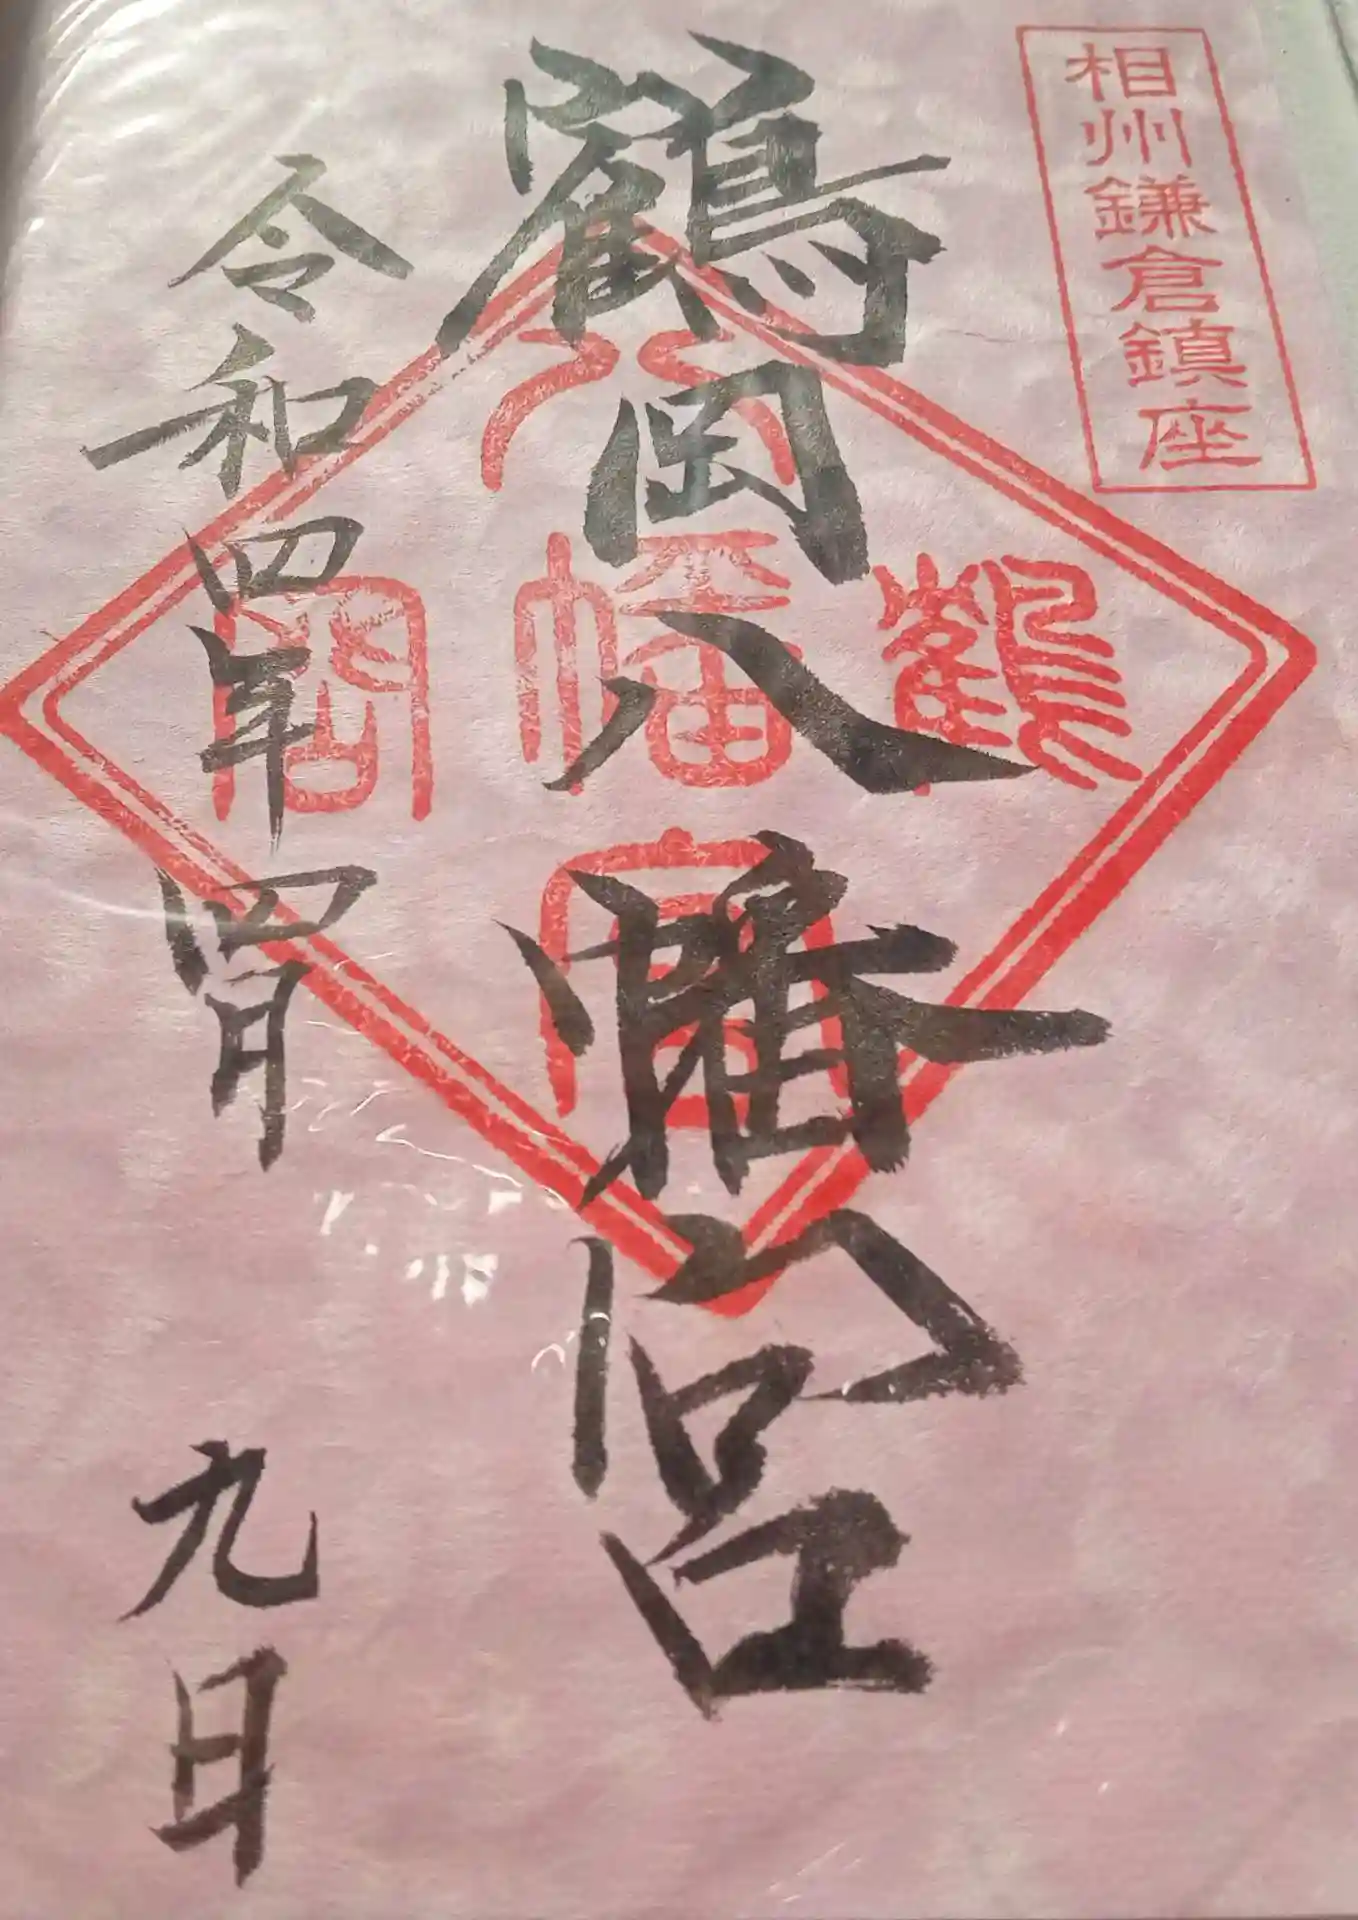 相州鎌倉鎮座
鶴岡八幡宮
鶴
八幡宮
岡
令和四年四月九日